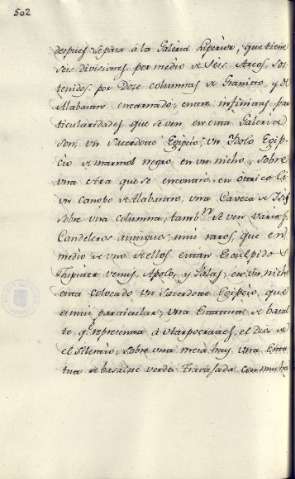 502
despues se pasa á la Galeria superior, que tiene
seis divisiones por medio de seis Arcos, sos
tenidos por Doze columnas de Granito, y de
Alabastro encarnado, entre infinitas, par
ticularidades que se ven en esta Galeria
son un Sacerdote Egipcio, un Idolo Egip
cio de marmol negro, en un nicho, y sobre
una otra que se encontró en
un canopo de Alabastro, una Caveza de
sobre una columna, tambⁿ se ven varios,
Candeleros antiguos, mui raros, que en
medio de uno de ellos estan Esculpido
Jupiter venus, Apolo, y Palas, en un nicho
esta colocado un Sacerdote Egipcio, que
es mui particular, una Estatua de basal
te q representa á Harpocrates, el Dios de
el Silencio, sobre una mesa hay otra Esta
tua de basalte verde trabajada con mucha